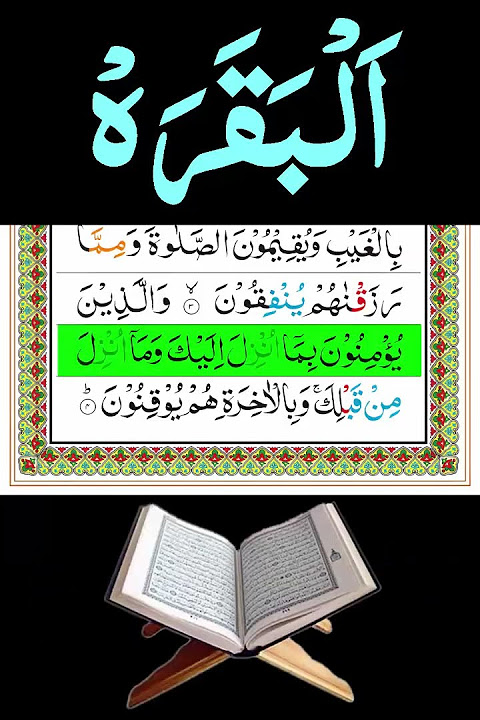 اَلْبَقَرَهْ
بِالْغَيْبِ وَيُقِيْمُوْنَ الصَّلٰوةَ وَمِمَّا
رَزَقْنٰهُمْ يُنْفِقُوْنَ ۙ﴿۳﴾ وَالَّذِيْنَ
يُؤْمِنُوْنَ بِمَاۤ اُنْزِلَ اِلَيْكَ وَمَاۤ اُنْزِلَ
مِنْ قَبْلِكَ ۚ وَبِالْاٰخِرَةِ هُمْ يُوْقِنُوْنَ ؕ﴿۴﴾